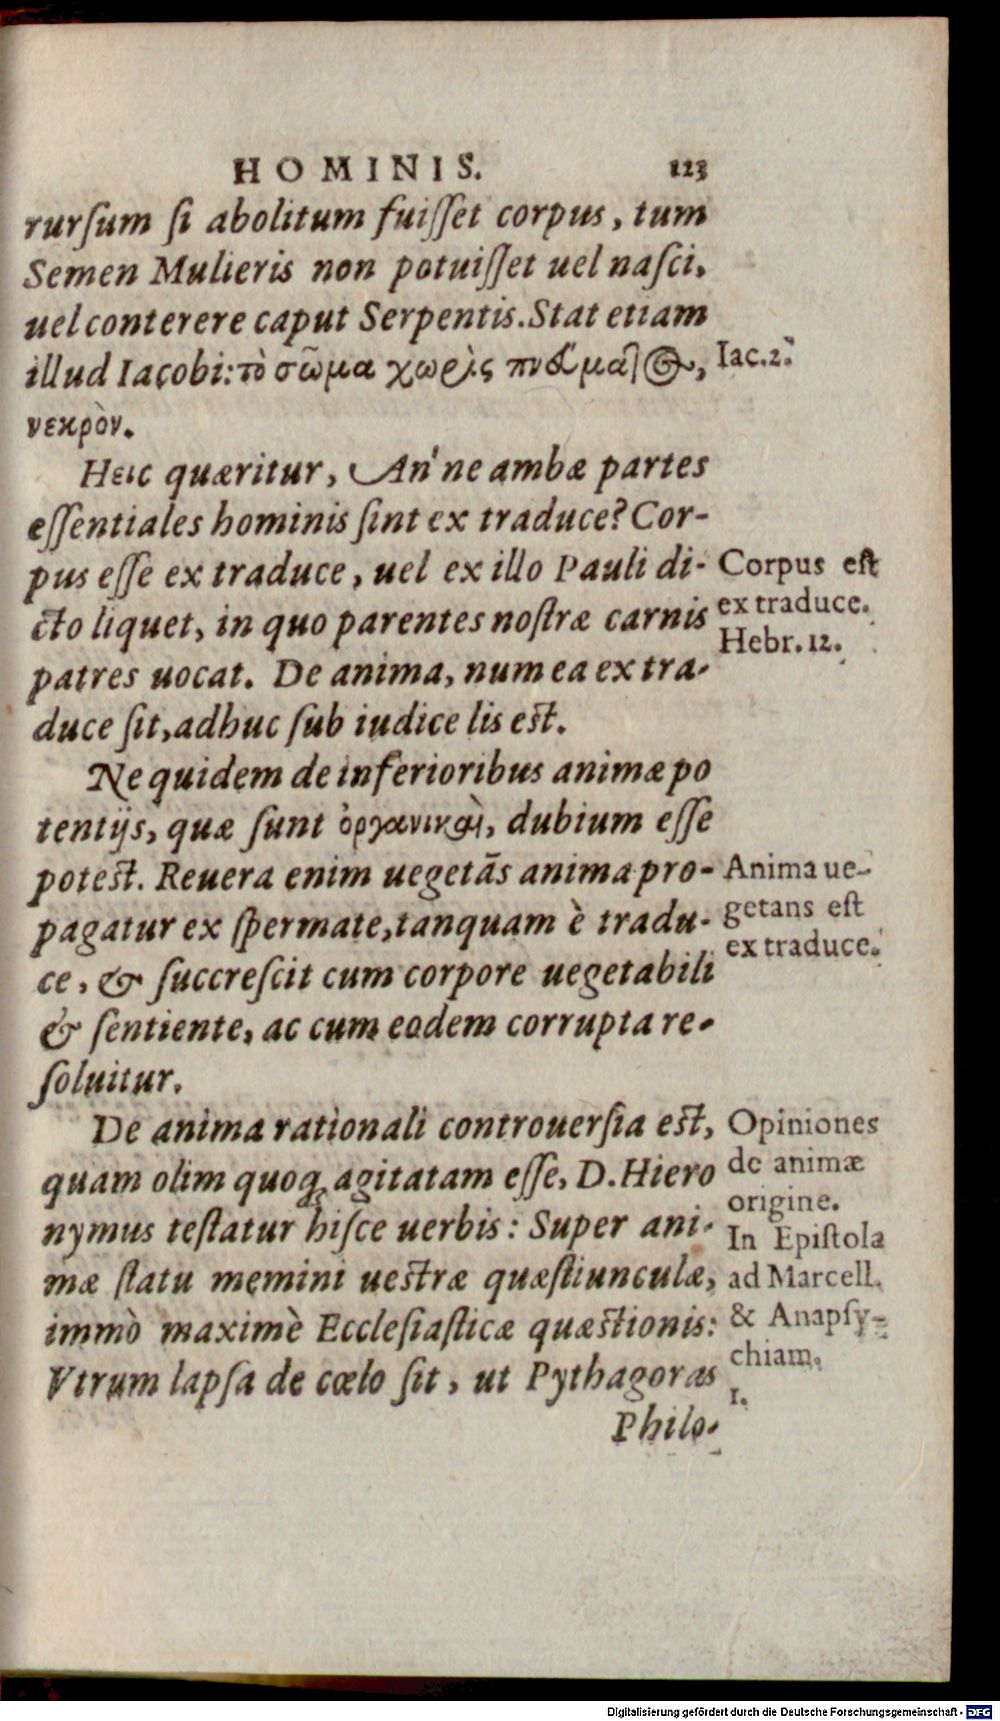 HOMINIS. 123
rursum si abolitum fuisset corpus, tum
Semen Mulieris non potuisset uel nasci,
uel conterere caput Serpentis. Stat etiam
illud Iacobi: τὸ σῶμα χωρὶς πνεύματος,
νεκρὸν.
Iac. 2.
Heic quæritur, An' ne ambæ partes
essentiales hominis sint ex traduce? Cor-
pus esse ex traduce, uel ex illo Pauli di-
cto liquet, in quo parentes nostræ carnis
patres uocat. De anima, num ea ex tra-
duce sit, adhuc sub iudice lis est.
Corpus est
ex traduce.
Hebr. 12.
Ne quidem de inferioribus animæ po
tentijs, quæ sunt ὀργανικαὶ, dubium esse
potest. Reuera enim uegetãs anima pro-
pagatur ex spermate, tanquam è tradu-
ce, & succrescit cum corpore uegetabili
& sentiente, ac cum eodem corrupta re-
soluitur.
Anima ue-
getans est
ex traduce.
De anima rationali controuersia est,
quam olim quoq; agitatam esse, D. Hiero
nymus testatur hisce uerbis: Super ani-
mæ statu memini uestræ quæstiunculæ,
immò maximè Ecclesiasticæ quæstionis:
Vtrum lapsa de cœlo sit, ut Pythagoras
Opiniones
de animæ
origine.
In Epistola
ad Marcell.
& Anapsy-
chiam.
1.
Philo-
Digitalisierung gefördert durch die Deutsche Forschungsgemeinschaft - DFG